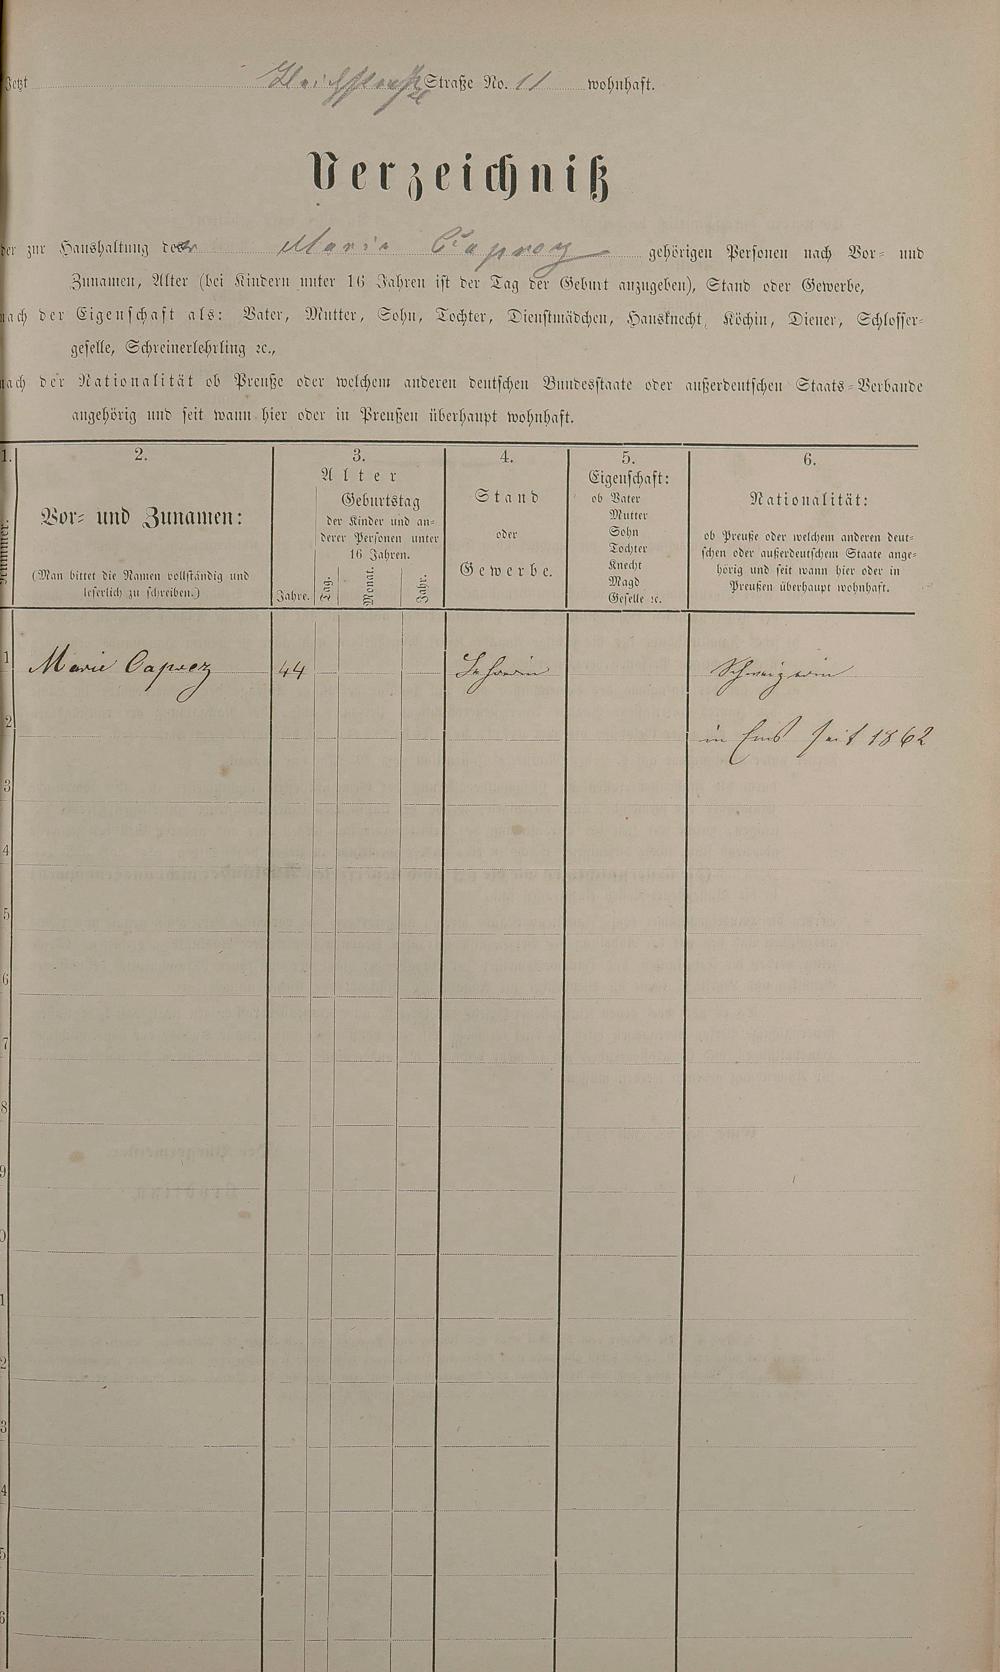 Jetzt Bleichstraße Straße No. 11 wohnhaft.
Verzeichniß
der zur Haushaltung der Marie Caprez gehörigen Personen nach Vor- und
Zunamen, Alter (bei Kindern unter 16 Jahren ist der Tag der Geburt anzugeben), Stand oder Gewerbe,
nach der Eigenschaft als: Vater, Mutter, Sohn, Tochter, Dienstmädchen, Hausknecht, Köchin, Diener, Schlosser-
geselle, Schreinerlehrling ꝛc.,
nach der Nationalität ob Preuße oder welchem anderen deutschen Bundesstaate oder außerdeutschen Staats-Verbande
angehörig und seit wann hier oder in Preußen überhaupt wohnhaft.
1. 2. 3. 4. 5. 6.
Nummer.
Vor- und Zunamen:
(Man bittet die Namen vollständig und
leserlich zu schreiben.)
Alter
Geburtstag
der Kinder und an-
derer Personen unter
16 Jahren.
Jahre. Tag. Monat. Jahr.
Stand
oder
Gewerbe.
Eigenschaft:
ob Vater
Mutter
Sohn
Tochter
Knecht
Magd
Geselle ꝛc.
Nationalität:
ob Preuße oder welchem anderen deut-
schen oder außerdeutschem Staate ange-
hörig und seit wann hier oder in
Preußen überhaupt wohnhaft.
1 Marie Caprez 44 Lehrerin Schweizerin
2 in Ems seit 1862
3
4
5
6
7
8
9
0
1
2
3
4
5
6